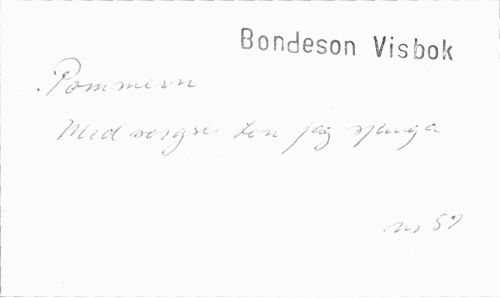 Bondeson Visbok
Pommern
Med sorgse ton jag sjunga
nr 59